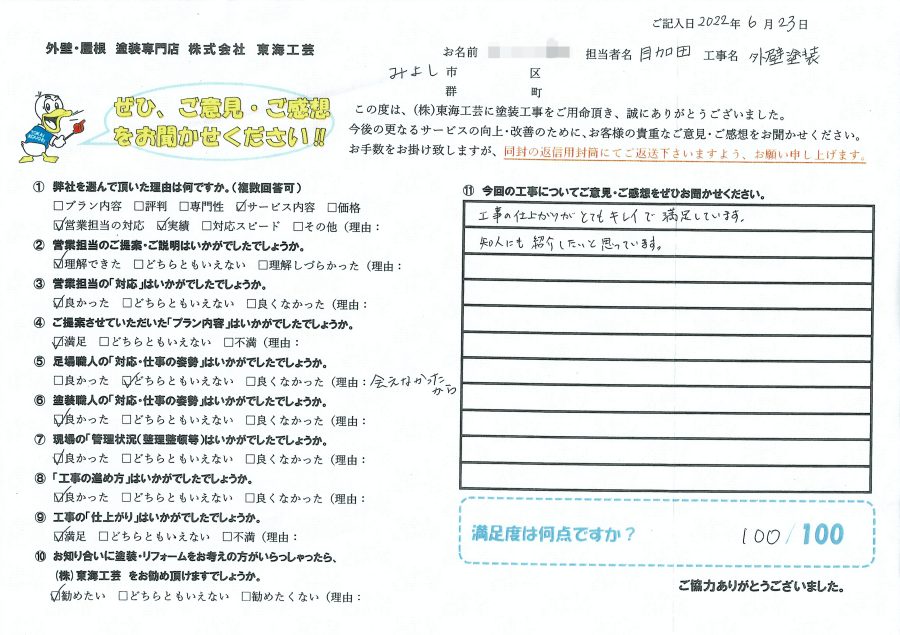 ご記入日 2022年 6月 23日
外壁・屋根 塗装専門店 株式会社 東海工芸
お名前 担当者名 目加田 工事名 外壁塗装
みよし市 区
郡 町
ぜひ、ご意見・ご感想
をお聞かせください!!
この度は、(株)東海工芸に塗装工事をご用命頂き、誠にありがとうございました。
今後の更なるサービスの向上・改善のために、お客様の貴重なご意見・ご感想をお聞かせください。
お手数をお掛け致しますが、同封の返信用封筒にてご返送下さいますよう、お願い申し上げます。
① 弊社を選んで頂いた理由は何ですか。(複数回答可)
□プラン内容 □評判 □専門性 ☑サービス内容 □価格
☑営業担当の対応 ☑実績 □対応スピード □その他(理由:
② 営業担当のご提案・ご説明はいかがでしたでしょうか。
☑理解できた □どちらともいえない □理解しづらかった(理由:
③ 営業担当の「対応」はいかがでしたでしょうか。
☑良かった □どちらともいえない □良くなかった(理由:
④ ご提案させていただいた「プラン内容」はいかがでしたでしょうか。
☑満足 □どちらともいえない □不満(理由:
⑤ 足場職人の「対応・仕事の姿勢」はいかがでしたでしょうか。
□良かった ☑どちらともいえない □良くなかった(理由:会えなかった
から
⑥ 塗装職人の「対応・仕事の姿勢」はいかがでしたでしょうか。
☑良かった □どちらともいえない □良くなかった(理由:
⑦ 現場の「管理状況(整理整頓等)はいかがでしたでしょうか。
☑良かった □どちらともいえない □良くなかった(理由:
⑧ 「工事の進め方」はいかがでしたでしょうか。
☑良かった □どちらともいえない □良くなかった(理由:
⑨ 工事の「仕上がり」はいかがでしたでしょうか。
☑満足 □どちらともいえない □不満(理由:
⑩ お知り合いに塗装・リフォームをお考えの方がいらっしゃったら、
(株)東海工芸 をお勧め頂けますでしょうか。
☑勧めたい □どちらともいえない □勧めたくない(理由:
⑪ 今回の工事についてご意見・ご感想をぜひお聞かせください。
工事の仕上がりがとてもキレイで満足しています。
知人にも紹介したいと思っています。
満足度は何点ですか? 100/100
ご協力ありがとうございました。